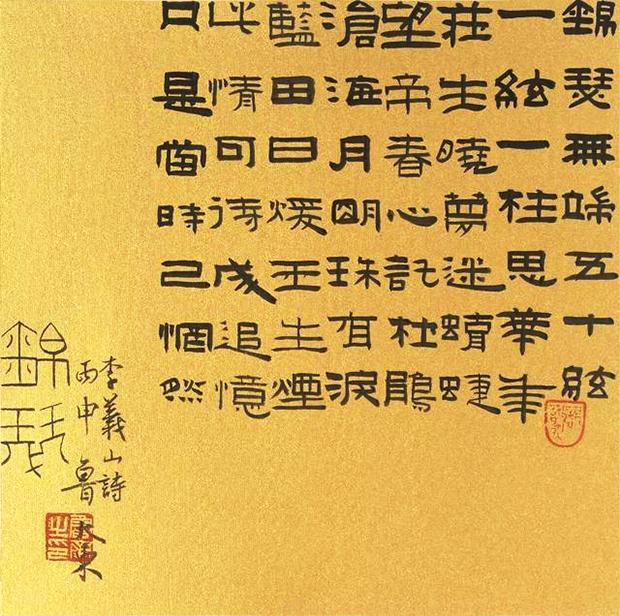 錦瑟無端五十絃
一絃一柱思華年
莊生曉夢迷蝴蝶
望帝春心託杜鵑
滄海月明珠有淚
藍田日煖玉生煙
此情可待成追憶
只是當時已惘然
錦瑟
李義山詩
丙申魯大東